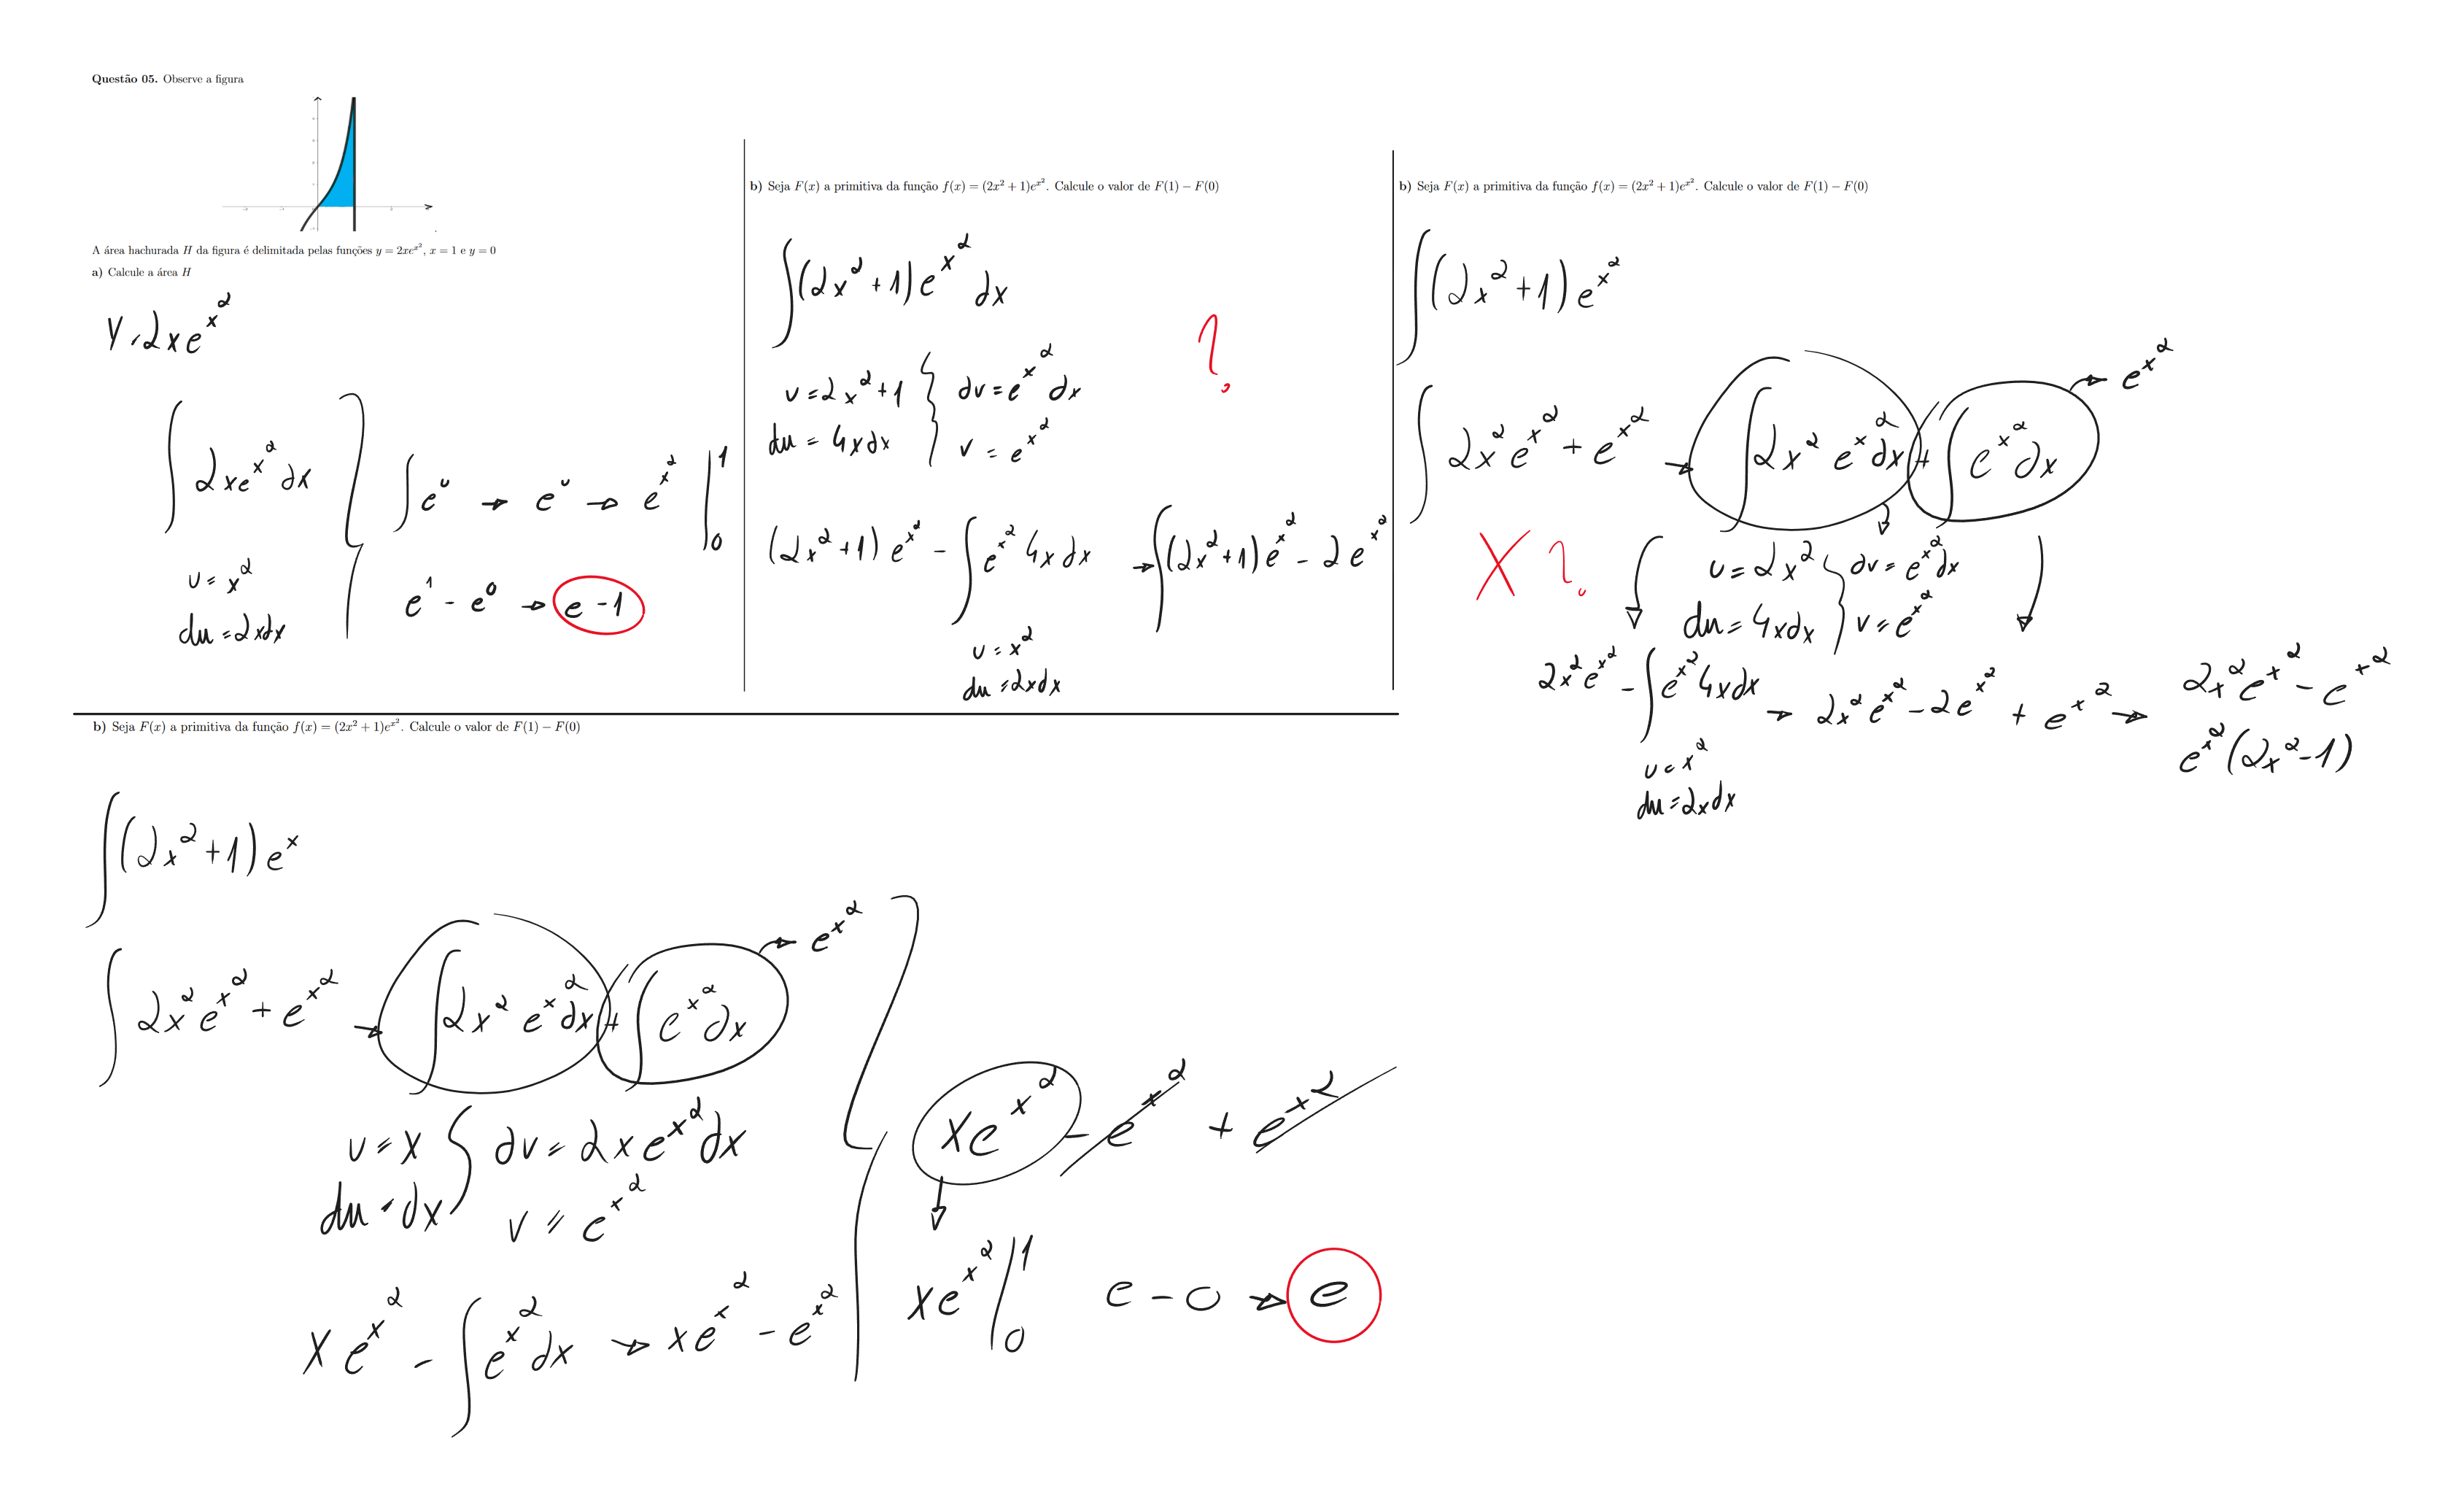 Questão 05. Observe a figura
A área hachurada H da figura é delimitada pelas funções y = 2xe^{x^2}, x = 1 e y = 0
a) Calcule a área H
y = 2xe^{x^2}
∫ 2xe^{x^2} dx
u = x^2
du = 2xdx
∫ e^u → e^u → e^{x^2} |_0^1
e^1 - e^0 → e - 1
b) Seja F(x) a primitiva da função f(x) = (2x^2 + 1)e^{x^2}. Calcule o valor de F(1) − F(0)
∫ (2x^2 + 1) e^{x^2} dx
?
u = 2x^2 + 1 } dv = e^{x^2} dx
du = 4xdx } v = e^{x^2}
(2x^2 + 1) e^{x^2} - ∫ e^{x^2} 4x dx → ∫ (2x^2 + 1) e^{x^2} - 2e^{x^2}
u = x^2
du = 2xdx
b) Seja F(x) a primitiva da função f(x) = (2x^2 + 1)e^{x^2}. Calcule o valor de F(1) − F(0)
∫ (2x^2 + 1) e^{x^2}
∫ 2x^2 e^{x^2} + e^{x^2} → ∫ 2x^2 e^{x^2} dx + ∫ e^{x^2} dx → e^{x^2}
X ?
u = 2x^2 } dv = e^{x^2} dx
du = 4xdx } v = e^{x^2}
2x^2 e^{x^2} - ∫ e^{x^2} 4xdx → 2x^2 e^{x^2} - 2e^{x^2} + e^{x^2} → 2x^2 e^{x^2} - e^{x^2}
e^{x^2} (2x^2 - 1)
u = x^2
du = 2xdx
b) Seja F(x) a primitiva da função f(x) = (2x^2 + 1)e^{x^2}. Calcule o valor de F(1) − F(0)
∫ (2x^2 + 1) e^x
∫ 2x^2 e^{x^2} + e^{x^2} → ∫ 2x^2 e^{x^2} dx + ∫ e^{x^2} dx → e^{x^2}
u = x } dv = 2x e^{x^2} dx
du = dx } v = e^{x^2}
x e^{x^2} - ∫ e^{x^2} dx → x e^{x^2} - e^{x^2}
x e^{x^2} - e^{x^2} + e^{x^2}
x e^{x^2} |_0^1 e - 0 → e